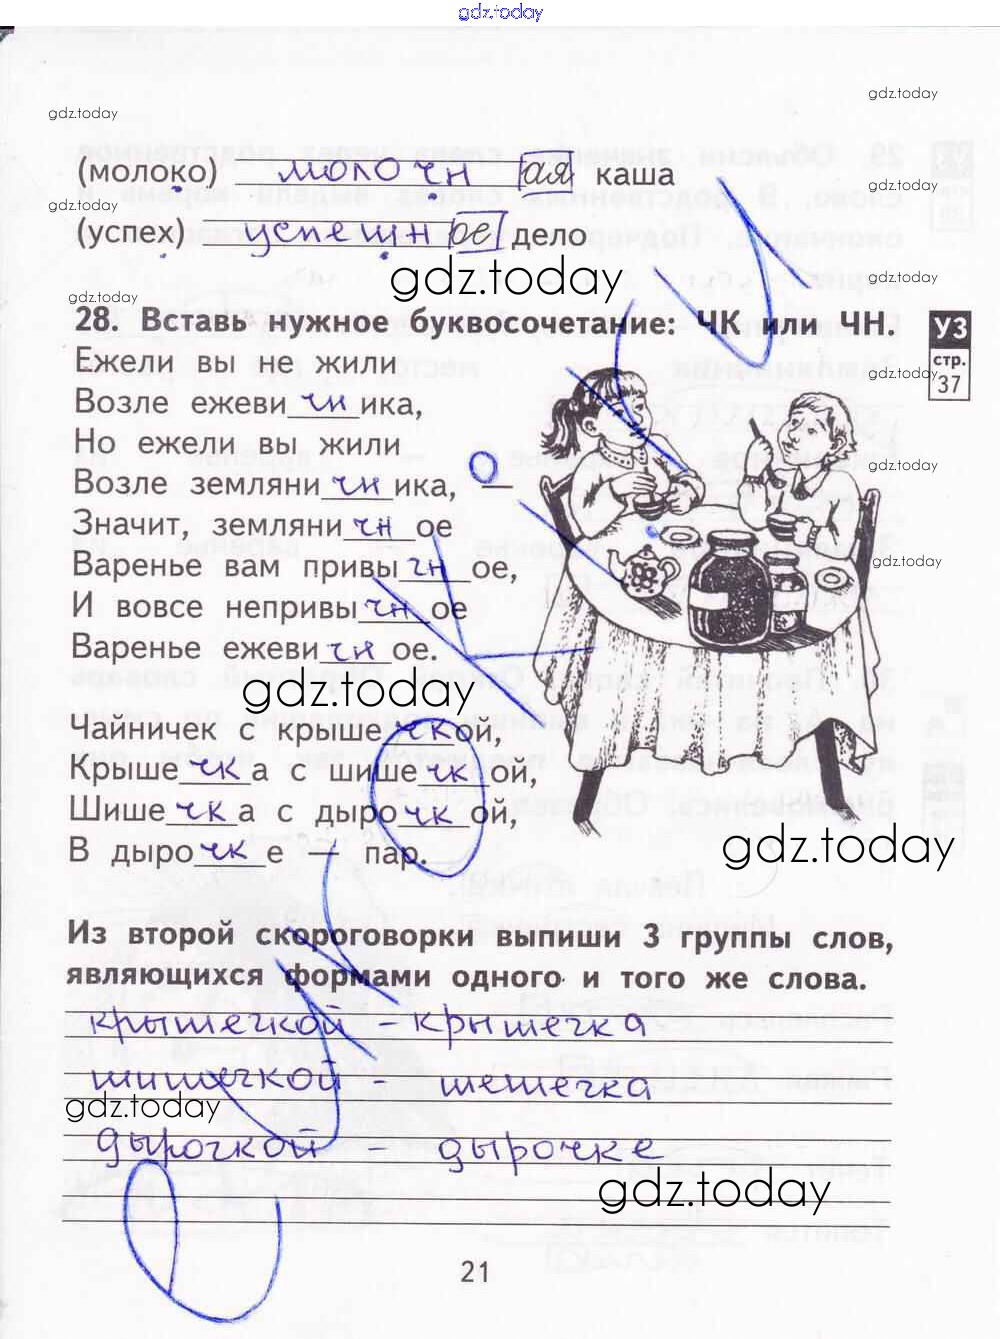 gdz.today
gdz.today
gdz.today
(молоко) молочн ая каша
gdz.today
gdz.today
(успех) успешн ое дело
gdz.today
gdz.today
gdz.today
28. Вставь нужное буквосочетание: ЧК или ЧН.
УЗ
стр.
37
Ежели вы не жили
gdz.today
Возле ежеви чн ика,
Но ежели вы жили
gdz.today
Возле земляни чн ика, —
Значит, земляни чн ое
gdz.today
Варенье вам привы чн ое,
И вовсе непривы чн ое
Варенье ежеви чн ое.
gdz.today
Чайничек с крыше чк ой,
Крыше чк а с шише чк ой,
Шише чк а с дыро чк ой,
В дыро чк е — пар.
gdz.today
Из второй скороговорки выпиши 3 группы слов,
являющихся формами одного и того же слова.
крышечкой – крышечка
шишечкой – шешечка
gdz.today
дырочкой – дырочке
gdz.today
21